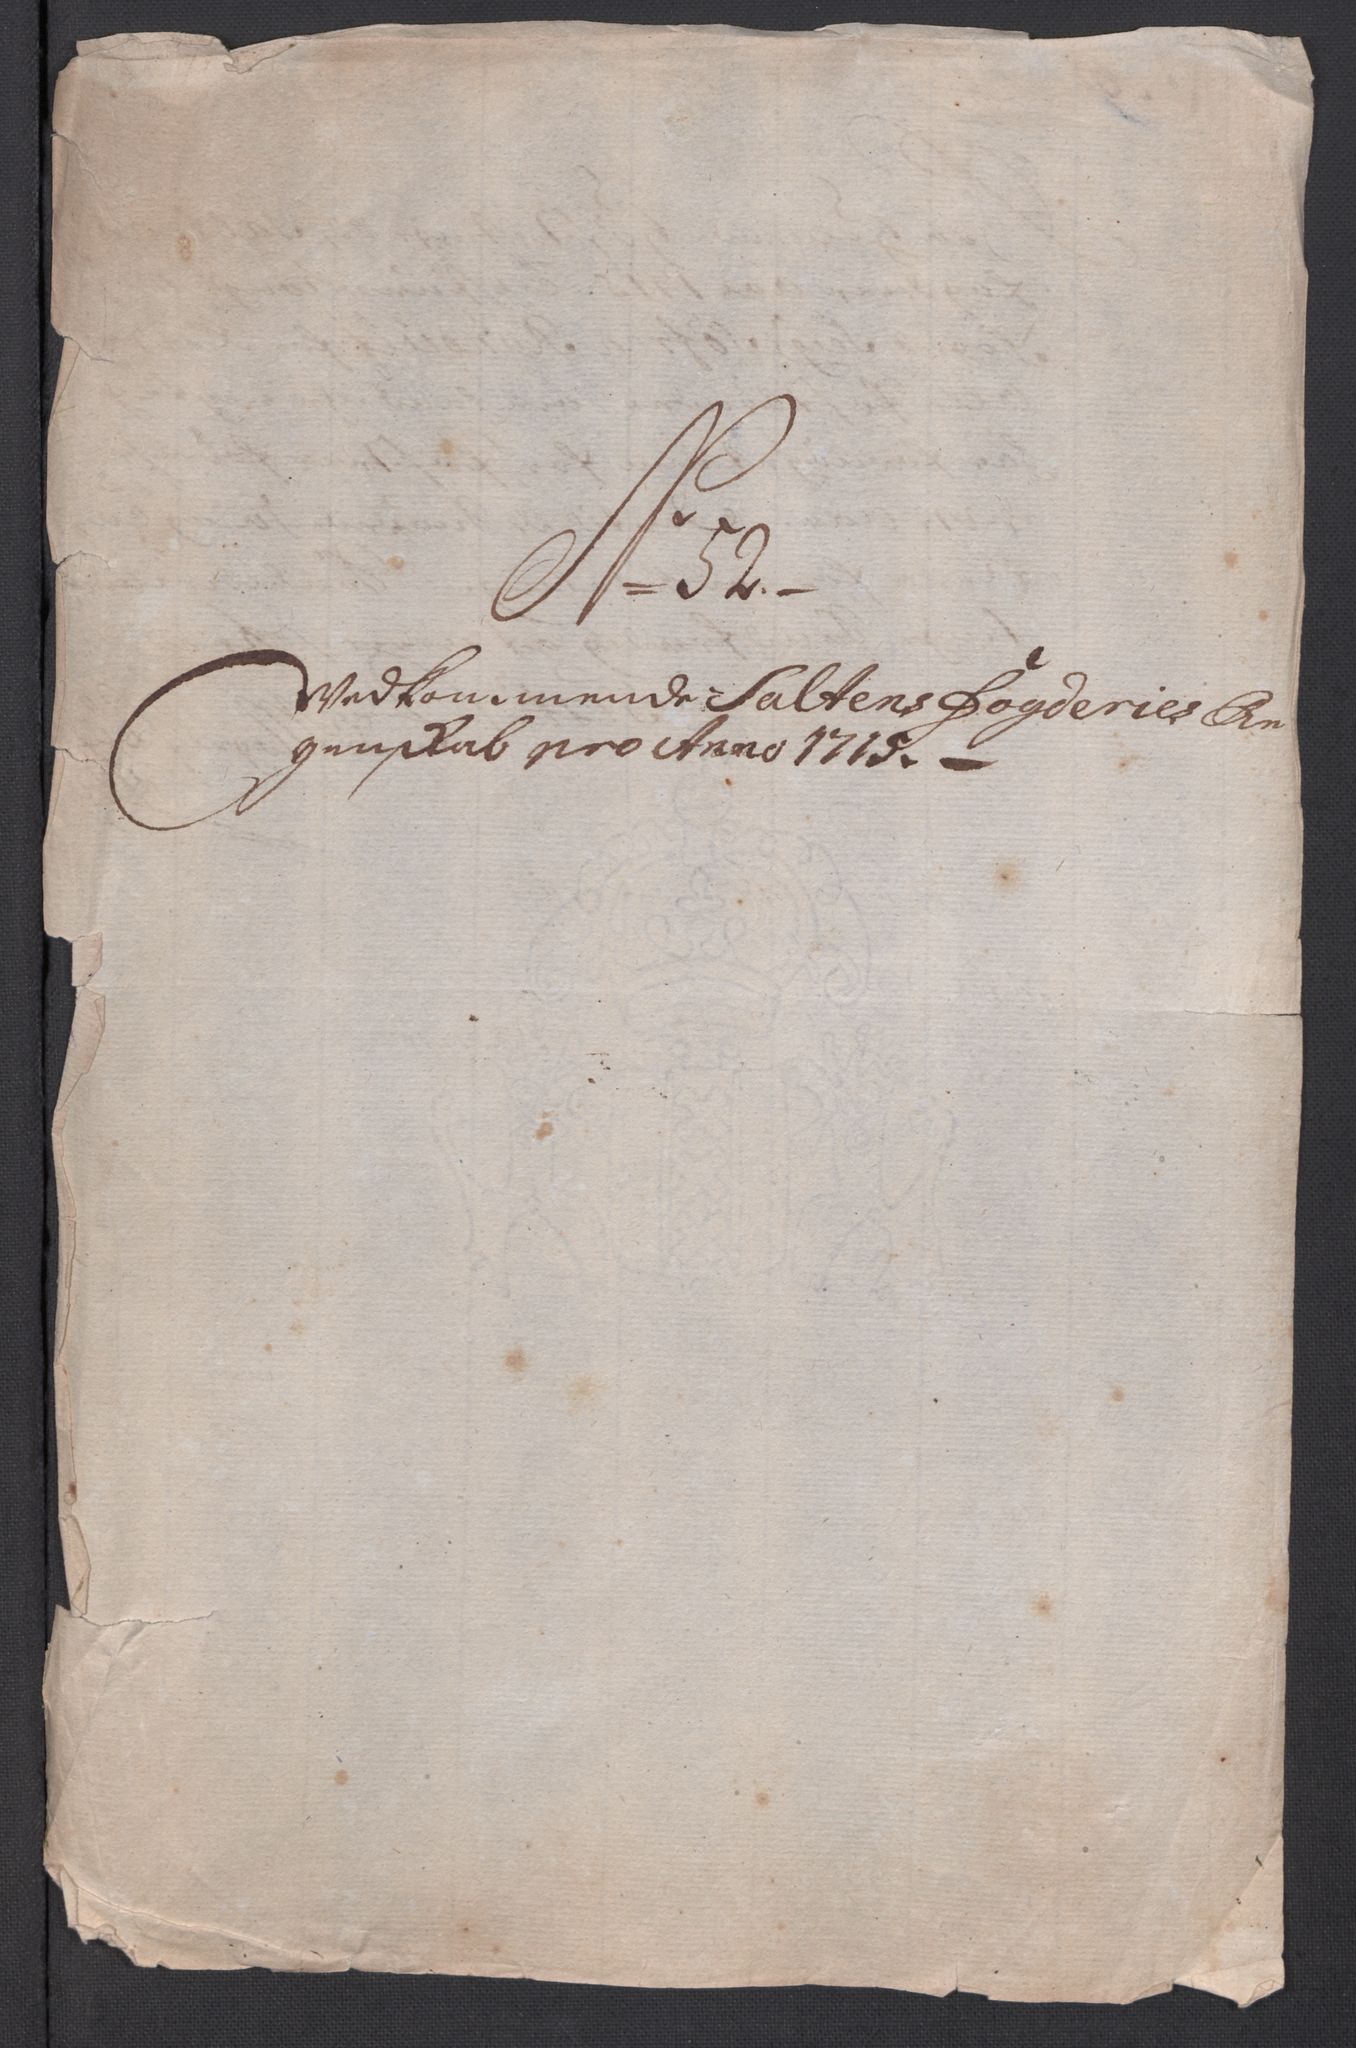 No 52.
Vedkommende Saltens Fogderies Re
genskab pro Anno 1715.